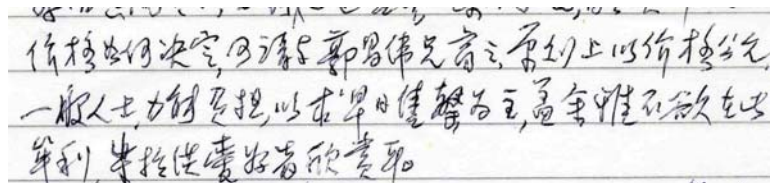 价格如何决定,可请与郭昌伟兄商之,原则上以价格公允,
一般人士,力能负担,以求早日售罄为主,盖余惟不欲在此
牟利,半拉供爱好者欣赏耳。